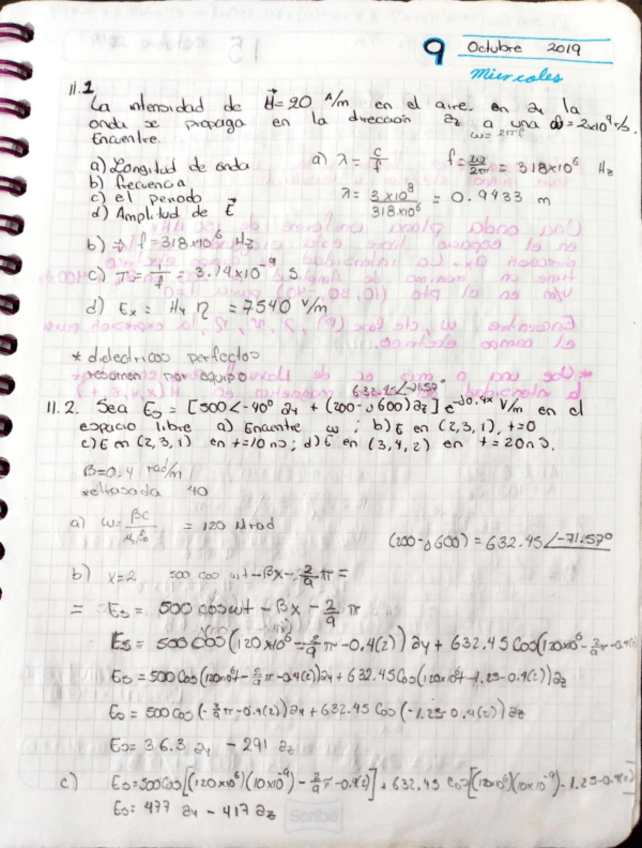 9 Octubre 2019
Miercoles
11.1
La intensidad de H⃗=20 A/m en el aire. en ay la
onda se propaga en la dirección az a una ω=2x10⁹r/s.
Encuentre. ω=2πf
a) Longitud de onda a) λ = c/f f=ω/2π = 318x10⁶ Hz
b) frecuencia
c) el periodo λ= 3x10⁸/318x10⁶ = 0.9433 m
d) Amplitud de E⃗
b) ⇒ f=318x10⁶ Hz
c) T=1/f = 3.14x10⁻⁹ s
d) Ex = Hy η = 7540 V/m
* dielectricos perfectos
resumen por equipo
632.45∠-71.57°
11.2. Sea Es = [500∠-40° ay + (200-j600)az] e^-j0.4x V/m en el
espacio libre a) Encuentre ω ; b) E en (2,3,1), t=0
c) E en (2,3,1) en t=10 ns; d) E en (3,4,2) en t=20ns.
β=0.4 rad/m
retrasada 40
a) ω= βc/ = 120 Mrad
(200-j600) = 632.45∠-71.57°
b) x=2 500 cos ωt-βx-2/9π =
= Es = 500 cosωt - βx - 2/9 π
Es = 500 Cos(120x10⁶ - 2/9π-0.4(2)) ay + 632.45 Cos(120x10⁶ - 2/9π -0.4(2)
Es = 500Cos(120x10⁶t-2/9π-0.4(2))ay+632.45Cos(120x10⁶t-1.25-0.4(2))az
Es = 500Cos(-2/9π-0.4(2))ay+632.45 Cos(-1.25-0.4(2))az
Es= 36.3 ay - 291 az
c) Es=500Cos[(120x10⁶)(10x10⁻⁹) - 2/9π-0.4(2)] + 632.45 Cos[(120x10⁶)(10x10⁻⁹)-1.25-0.4(2)
Es= 477 ay - 417 az
Scribe